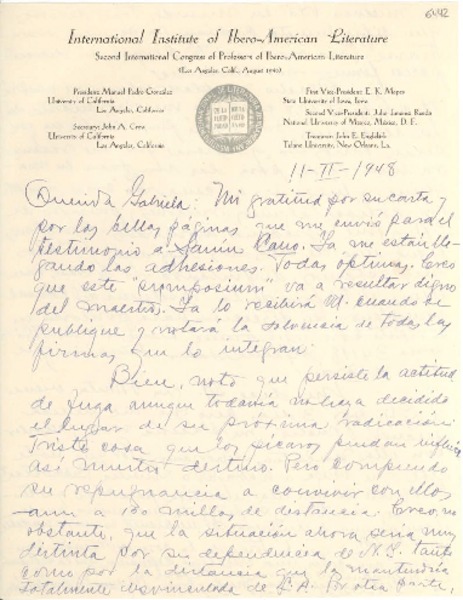 6442
International Institute of Ibero-American Literature
Second International Congress of Professors of Ibero-American Literature
(Los Angeles, Calif., August 1940)
President: Manuel Pedro González
University of California
Los Angeles, Calif.
Secretary: John A. Crow
University of California
Los Angeles, Calif.
First Vice-President: E. K. Mapes
State University of Iowa, Iowa
Second Vice-President: Julio Jiménez Rueda
National University of Mexico, México, D. F.
Treasurer: John E. Englekirk
Tulane University, New Orleans, La.
11-II-1948
Querida Gabriela: Mi gratitud por su carta y
por las bellas páginas que me envió para el
testimonio a Sanín Cano. Ya me están lle-
gando las adhesiones. Todas óptimas. Creo
que este "symposium" va a resultar digno
del maestro. Ya lo recibirá U. cuando se
publique y notará la solvencia de todas las
firmas que lo integran.
Bien, noto que persiste la actitud
de fuga aunque todavía no haya decidido
el lugar de su próxima radicación.
Triste cosa que los pícaros puedan influir
así nuestro destino. Pero comprendo
su repugnancia a convivir con ellos
aun a 100 millas de distancia. Creo, no
obstante, que la situación ahora sería muy
distinta por su dependencia de N.Y. tanto
como por la distancia que la mantendría
totalmente desvinculada de L.A. Por otra parte,